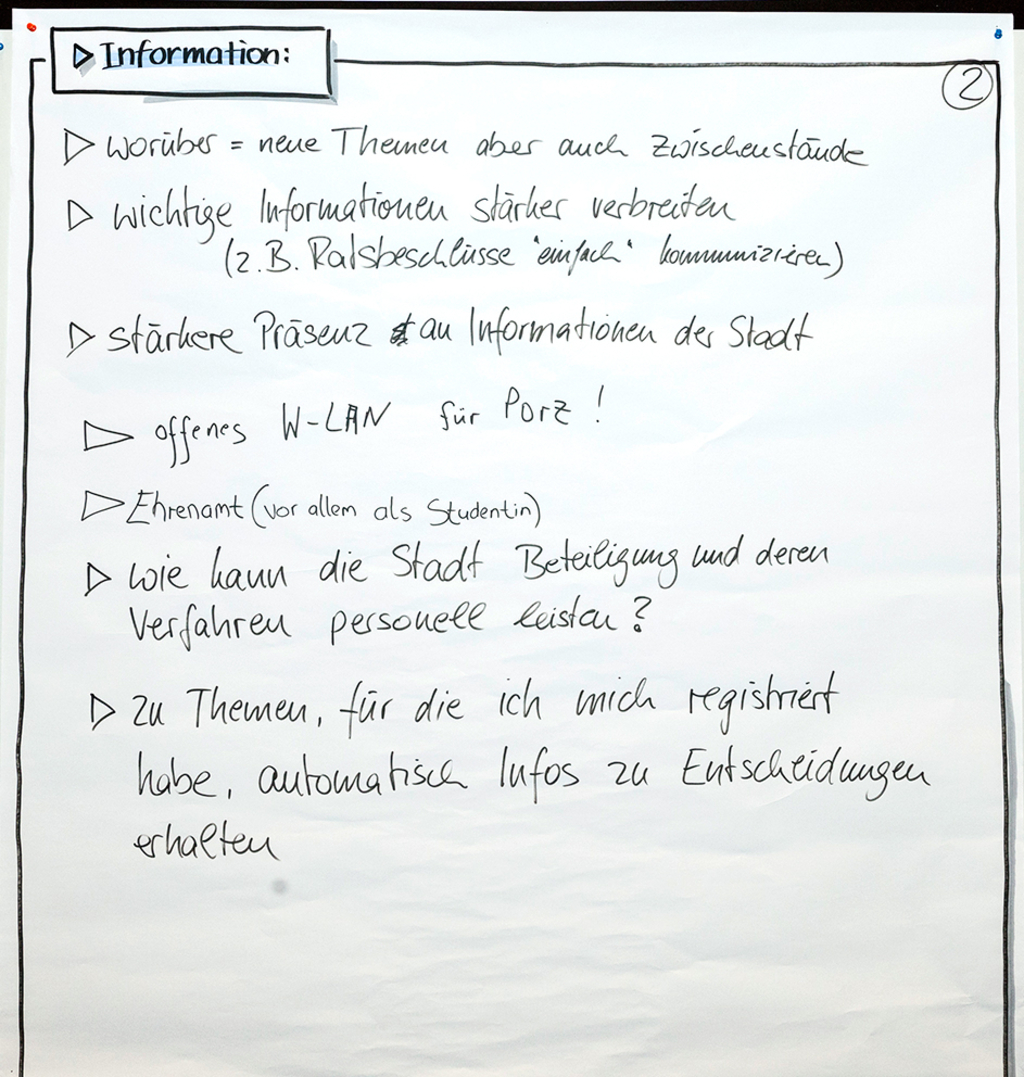 ▷ Information:
2
▷ worüber = neue Themen aber auch Zwischenstände
▷ wichtige Informationen stärker verbreiten
(z.B. Ratsbeschlüsse "einfach" kommunizieren)
▷ stärkere Präsenz an Informationen der Stadt
▷ offenes W-LAN für Porz!
▷ Ehrenamt (vor allem als Studentin)
▷ wie kann die Stadt Beteiligung und deren
Verfahren personell leisten?
▷ zu Themen, für die ich mich registriert
habe, automatisch Infos zu Entscheidungen
erhalten